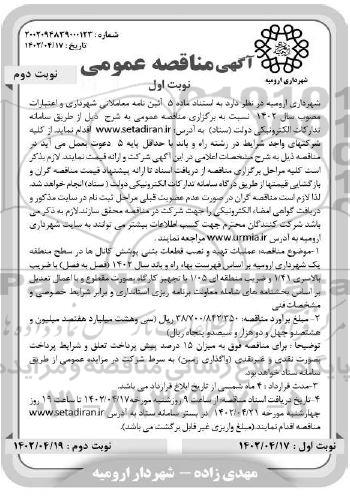 شماره : ۲۰۰۲۰۹۴۸۲۹۰۰۰۱۲۳
تاریخ : ۱۴۰۲/۰۴/۱۷
شهرداری ارومیه
آگهی مناقصه عمومی
نوبت دوم
نوبت اول
شهرداری ارومیه در نظر دارد به استناد ماده ۵ آئین نامه معاملاتی شهرداری و اعتبارات
مصوب سال ۱۴۰۲ نسبت به برگزاری مناقصه عمومی به شرح ذیل از طریق سامانه
تدارکات الکترونیکی دولت (ستاد) به آدرس: www.setadiran.ir اقدام نماید. از کلیه
شرکتهای واجد شرایط در رشته راه و باند با حداقل پایه ۵ دعوت بعمل می آید در
مناقصه ذیل به شرح مشخصات اعلامی در این آگهی شرکت و ارائه قیمت نمایند. لازم بذکر
است کلیه مراحل برگزاری مناقصه از دریافت اسناد تا ارائه پیشنهاد قیمت مناقصه گران و
بازگشایی قیمتها از طریق درگاه سامانه تدارکات الکترونیکی دولت ( ستاد) انجام خواهد شد.
لذا لازم است مناقصه گران در صورت عدم عضویت قبلی مراحل ثبت نام در سایت مذکور و
دریافت گواهی امضاء الکترونیکی را جهت شرکت در مناقصه محقق سازند. لازم به ذکر می
باشد شرکت کنندگان محترم جهت کسب اطلاعات بیشتر می توانند به سایت شهرداری
ارومیه به آدرس www.urmia.ir مراجعه نمایند .
۱-موضوع مناقصه: عملیات تهیه و نصب قطعات بتنی پوشش کانال ها در سطح منطقه
یک شهرداری ارومیه بر اساس فهرست بهاء راه و باند سال ۱۴۰۲ (فصل به فصل) با ضریب
بالاسری ۱/۴۱ و ضریب منطقه ای ۱/۰۵ با تجهیز کارگاه بصورت مقطوع و با اعمال تعدیل
بر اساس بخشنامه های شامله معاونت برنامه ریزی استانداری و برابر شرایط خصوصی و
مشخصات فنی
۲- مبلغ برآورد مناقصه: ۳۸/۷۰۰/۸۴۲/۳۵۰ ریال (سی وهشت میلیارد هفتصد میلیون و
هشتصدو چهل و دو هزار و سیصدو پنجاه ریال)
توضیحا : برای مناقصه فوق به میزان ۱۵ درصد پیش پرداخت تعلق و شرایط پرداخت
بصورت نقدی و غیرنقدی (واگذاری زمین) به شرط شرکت در مزایده عمومی از طریق
سامانه ستاد خواهد بود.
۳-مدت قرارداد : ۴ ماه شمسی از تاریخ ابلاغ قرارداد می باشد.
۴-تاریخ دریافت اسناد مناقصه: از ساعت ۹ روزشنبه مورخه۱۴۰۲/۰۴/۱۷ تا ساعت ۱۹ روز
چهارشنبه مورخه ۱۴۰۲/۰۴/۲۱ در بستر سامانه ستاد به آدرس www.setadiran.ir
مناقصه اقدام نمایند.(مبلغ واریزی غیر قابل برگشت می باشد).
نوبت اول : ۱۴۰۲/۰۴/۱۷
نوبت دوم : ۱۴۰۲/۰۴/۱۹
مهدی زاده – شهردار ارومیه